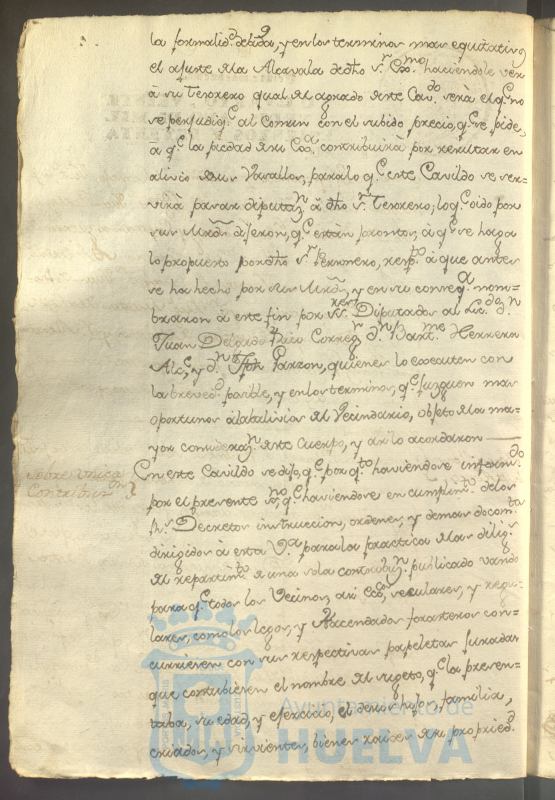 la formalid.d devida, y en los terminos mas equitativos
el ajuste de la Alcavala de dho s.r Ex.mo haciendole ver
à su Tesorero qual del agrado de este Cav.do serà el q.e no
se perjudiq.e al Comun con el subido precio, q.e se pide,
à q.e la piedad de su Ex.a contribuirà por resultar en
alivio de sus Vasallos, para lo q.e este Cavildo se ser-
virà pasar diputaz.n à dho s.r Tesorero; lo q.e oido por
sus Mrds. dijeron, q.e están prontos, à q.e se haga
lo propuesto por dho s.r Personero, resp.to à que antes
se ha hecho por sus Mrds. y en su conseq.a nom-
braron à este fin por sus Diputados al Lic.do d.n
Juan Delgado Rico Correg.r d.n Bart.me Herrera
Alc.e y d.n Jph Garzon, quienes lo executen con
la breved.d pasible, y en los terminos, q.e juzguen mas
oportunos al alivio del Vecindario, objeto de la ma-
yor consideraz.n de este Cuerpo, y asi lo acordaron
Sobre Unica
Contribuz.n
En este Cavildo se dijo, q.e por q.to haviendose inform.do
por el presente s.no, q.e haviendose en cumplim.to de los
R.s Decretos instruccion, ordenes, y demas docom.tos
dirigidos à esta V.a para la practica de las dilig.s
del repartim.to de una sola contribuz.n publicado vando
para q.e todos los Vecinos, asi Ecc.os, seculares, y regu-
lares, como los legos, y Hacendados forasteros con-
curriesen con sus respectivas papeletas juradas
que contubiesen el nombre del sugeto, q.e la presen-
taba, su edad, y ejercicio, el de sus hijos, familia,
criados, y sirvientes, bienes raices de su propried.d
Ayuntamiento de
HUELVA